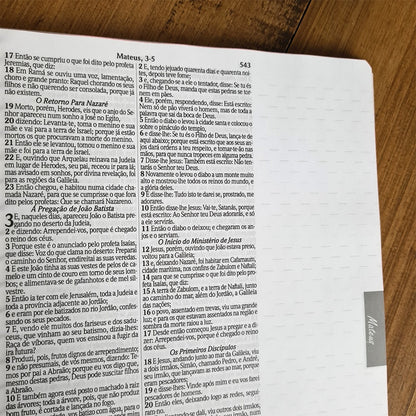 Mateus, 3-5
543
17 Então se cumpriu o que foi dito pelo profeta
Jeremias, que diz:
18 Em Ramá se ouviu uma voz, lamentação,
choro e grande pranto: Raquel chorando os seus
filhos e não querendo ser consolada, porque já não
existem.
O Retorno Para Nazaré
19 Morto, porém, Herodes, eis que o anjo do Se-
nhor apareceu num sonho a José no Egito,
20 dizendo: Levanta-te, toma o menino e sua
mãe e vai para a terra de Israel; porque já estão
mortos os que procuravam a morte do menino.
21 Então ele se levantou, tomou o menino e sua
mãe e foi para a terra de Israel.
22 E, ouvindo que Arquelau reinava na Judeia
em lugar de Herodes, seu pai, receou ir para lá;
mas avisado em sonhos, por divina revelação, foi
para as regiões da Galileia.
23 Então chegou, e habitou numa cidade cha-
mada Nazaré, para que se cumprisse o que fora
dito pelos profetas: Que se chamará Nazareno.
A Pregação de João Batista
3 E, naqueles dias, apareceu João o Batista pre-
gando no deserto da Judeia,
2 e dizendo: Arrependei-vos, porque é chegado
o reino dos céus.
3 Porque este é o anunciado pelo profeta Isaías,
que disse: Voz do que clama no deserto: Preparai
o caminho do Senhor, endireitai as suas veredas.
4 E este João tinha as suas vestes de pelos de ca-
melo e um cinto de couro em torno de seus lom-
bos; e alimentava-se de gafanhotos e de mel sil-
vestre.
5 Então ia ter com ele Jerusalém, toda a Judeia e
toda a província adjacente ao Jordão;
6 e eram por ele batizados no rio Jordão, confes-
sando os seus pecados.
7 E, vendo ele muitos dos fariseus e dos sadu-
ceus, que vinham ao seu batismo, dizia-lhes:
Raça de víboras, quem vos ensinou a fugir da
ira futura?
8 Produzi, pois, frutos dignos de arrependimento;
9 e não presumais, de vós mesmos, dizendo: Te-
mos por pai a Abraão; porque eu vos digo que,
mesmo destas pedras, Deus pode suscitar filhos
a Abraão.
10 E também agora está posto o machado à raiz
das árvores; toda a árvore, pois, que não produz
bom fruto, é cortada e lançada no fogo.
2 E, tendo jejuado quarenta dias e quarenta noi-
tes, depois teve fome;
3 e, chegando-se a ele o tentador, disse: Se tu és
o Filho de Deus, manda que estas pedras se tor-
nem em pães.
4 Ele, porém, respondendo, disse: Está escrito:
Nem só de pão viverá o homem, mas de toda a
palavra que sai da boca de Deus.
5 Então o diabo o levou à cidade santa e colocou-o
sobre o pináculo do templo,
6 e disse-lhe: Se tu és o Filho de Deus, lança-te de
aqui abaixo; porque está escrito que aos seus an-
jos dará ordens a teu respeito, e tomar-te-ão nas
mãos, para que nunca tropeces em alguma pedra.
7 Disse-lhe Jesus: Também está escrito: Não ten-
tarás o Senhor teu Deus.
8 Novamente o levou o diabo a um monte muito
alto e mostrou-lhe todos os reinos do mundo, e
a glória deles.
9 E disse-lhe: Tudo isto te darei se, prostrado, me
adorares.
10 Então disse-lhe Jesus: Vai-te, Satanás, porque
está escrito: Ao Senhor teu Deus adorarás, e só
a ele servirás.
11 Então o diabo o deixou; e chegaram os an-
jos e o serviam.
O Início do Ministério de Jesus
12 Jesus, porém, ouvindo que João estava preso,
voltou para a Galileia;
13 e, deixando Nazaré, foi habitar em Cafarnaum,
cidade marítima, nos confins de Zabulom e Naftali;
14 para que se cumprisse o que foi dito pelo pro-
feta Isaías, que diz:
15 A terra de Zabulom, e a terra de Naftali, junto
ao caminho do mar, além do Jordão, a Galileia
das nações;
16 o povo, assentado em trevas, viu uma grande
luz; e para os que estavam assentados na região e
sombra da morte raiou a luz.
17 Desde então começou Jesus a pregar e a di-
zer: Arrependei-vos, porque é chegado o reino
dos céus.
Os Primeiros Discípulos
18 E Jesus, andando junto ao mar da Galileia, viu
a dois irmãos, Simão, chamado Pedro, e André,
seu irmão, que lançavam as redes ao mar, porque
eram pescadores;
19 e disse-lhes: Vinde após mim e eu vos farei
pescadores de homens.
20 Então eles, deixando logo as redes, segui-
Mateus